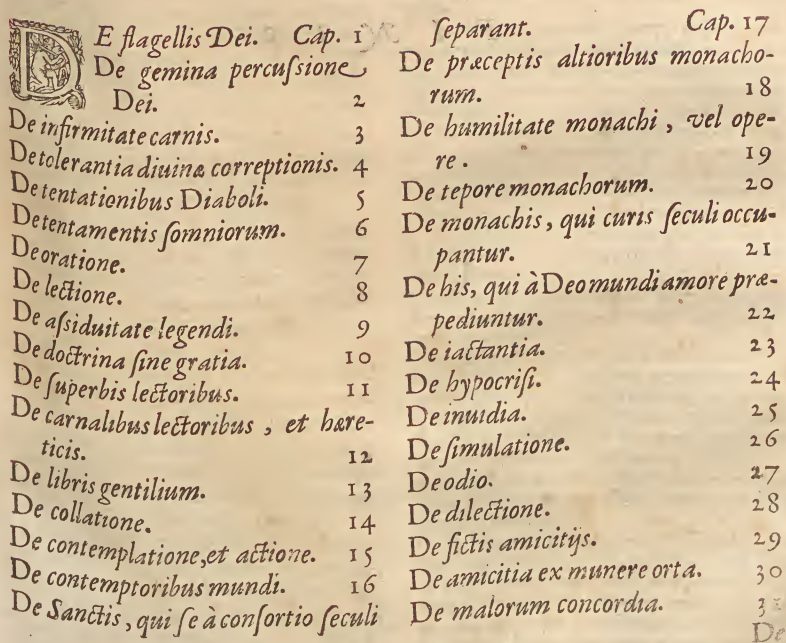 DE flagellis Dei. Cap. 1
De gemina percuſsione
Dei. 2
De infirmitate carnis. 3
De tolerantia diuinæ correptionis. 4
De tentationibus Diaboli. 5
De tentamentis ſomniorum. 6
De oratione. 7
De lectione. 8
De aſsiduitate legendi. 9
De doctrina ſine gratia. 10
De ſuperbis lectoribus. 11
De carnalibus lectoribus, et hære-
ticis. 12
De libris gentilium. 13
De collatione. 14
De contemplatione, et actione. 15
De contemptoribus mundi. 16
De Sanctis, qui ſe à conſortio ſeculi
ſeparant. Cap. 17
De præceptis altioribus monacho-
rum. 18
De humilitate monachi, vel ope-
re. 19
De tepore monachorum. 20
De monachis, qui curis ſeculi occu-
pantur. 21
De his, qui à Deo mundi amore præ-
pediuntur. 22
De iactantia. 23
De hypocriſi. 24
De inuidia. 25
De ſimulatione. 26
De odio. 27
De dilectione. 28
De fictis amicitijs. 29
De amicitia ex munere orta. 30
De malorum concordia. 31
De